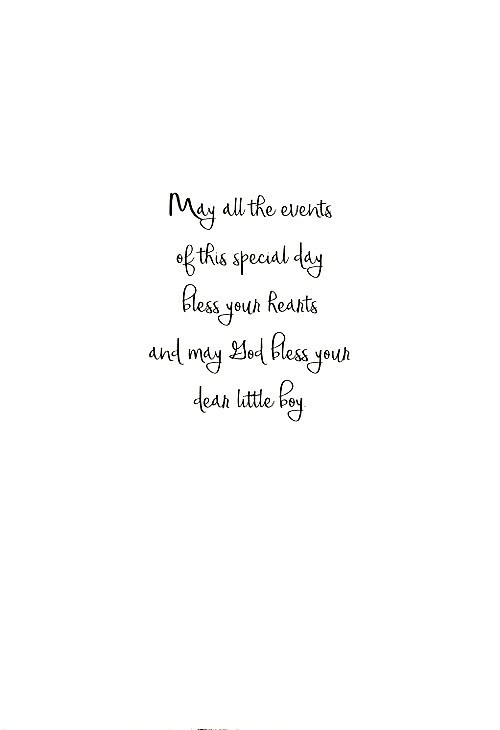 May all the events
of this special day
bless your hearts
and may God bless your
dear little boy.